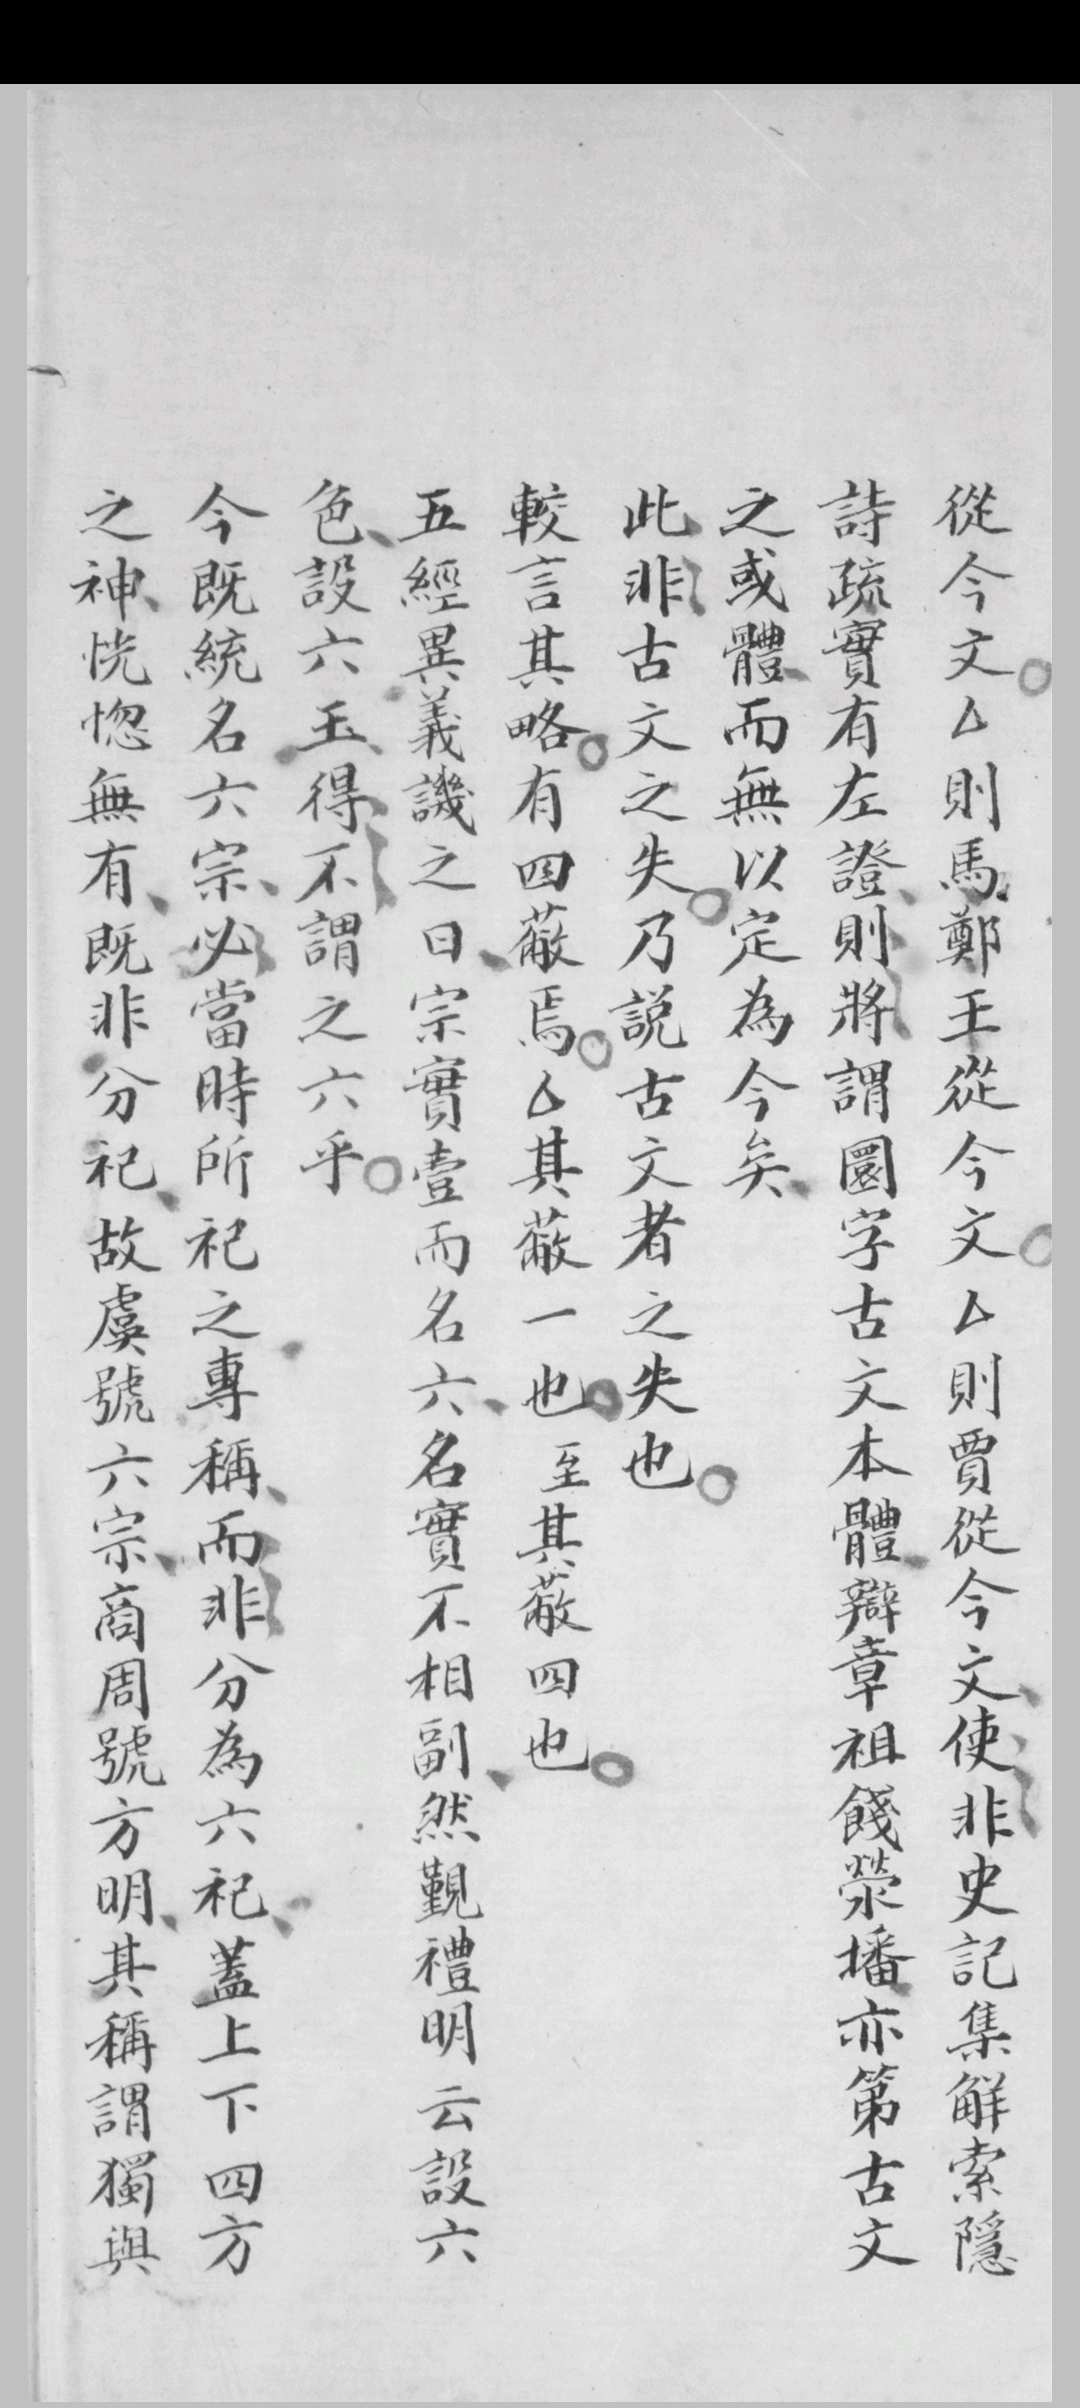 從今文厶則馬鄭王從今文厶則賈從今文使非史記集解索隱
詩疏實有左證則將謂圛字古文本體辯章祖餞滎播亦第古文
之或體而無以定為今矣
此非古文之失乃説古文者之失也
較言其略有四蔽焉厶其蔽一也至其蔽四也
五經異義譏之曰宗實壹而名六名實不相副然覲禮明云設六
色設六玉得不謂之六乎
今既統名六宗必當時所祀之專稱而非分為六祀蓋上下四方
之神恍惚無有既非分祀故虞號六宗商周號方明其稱謂獨與